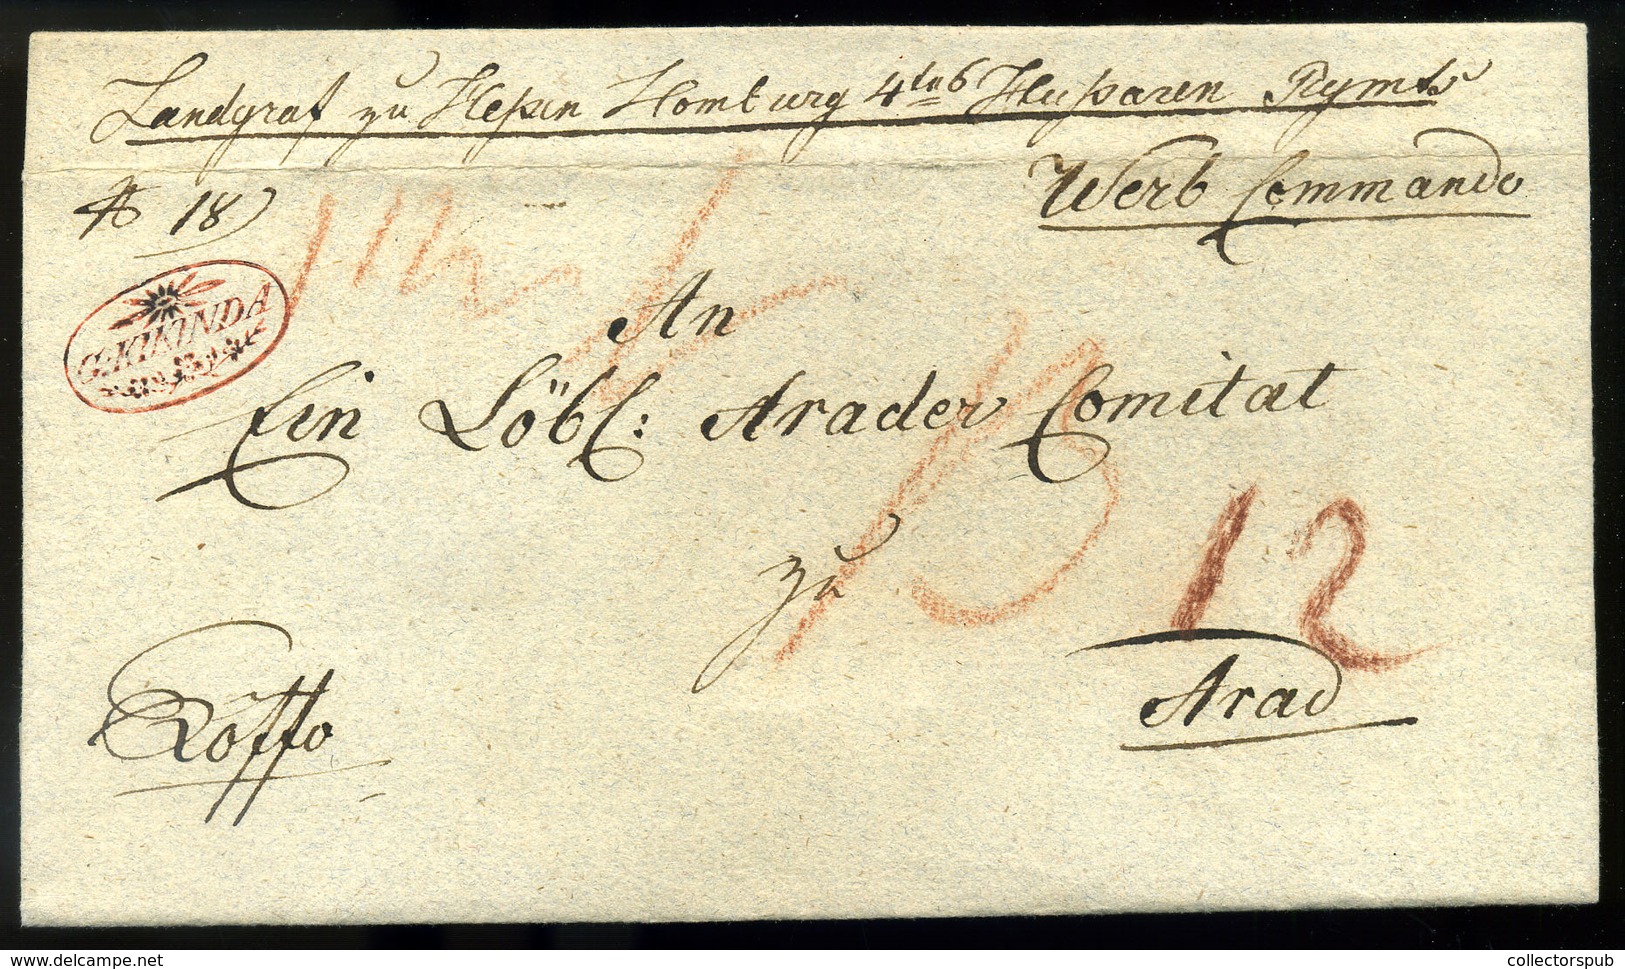 Landgraf zu Heßen Homburg 4ten Hußaren Rgmts
Werb Commando
№ 18
G: KIKINDA
An
Ein Löbl: Arader Comitat
12
zu
Arad
www.delcampe.net
collectorspub